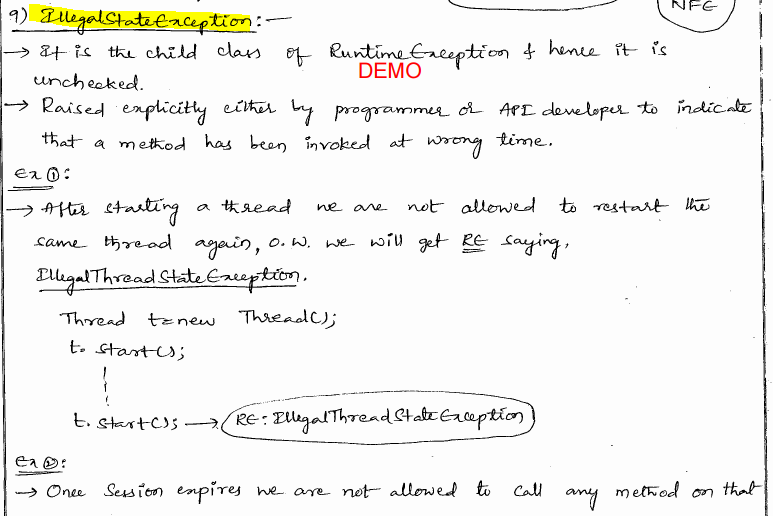 NFE
9) IllegalStateException:-
→ It is the child class of RuntimeException & hence it is
DEMO
unchecked.
→ Raised explicitly either by programmer or API developer to indicate
that a method has been invoked at wrong time.
Ex ①:
→ After starting a thread we are not allowed to restart the
same thread again, o.w. we will get RE saying,
IllegalThreadStateException.
Thread t=new Thread();
t.start();
t.start(); → RE: IllegalThreadStateException
Ex ②:
→ Once Session expires we are not allowed to call any method on that